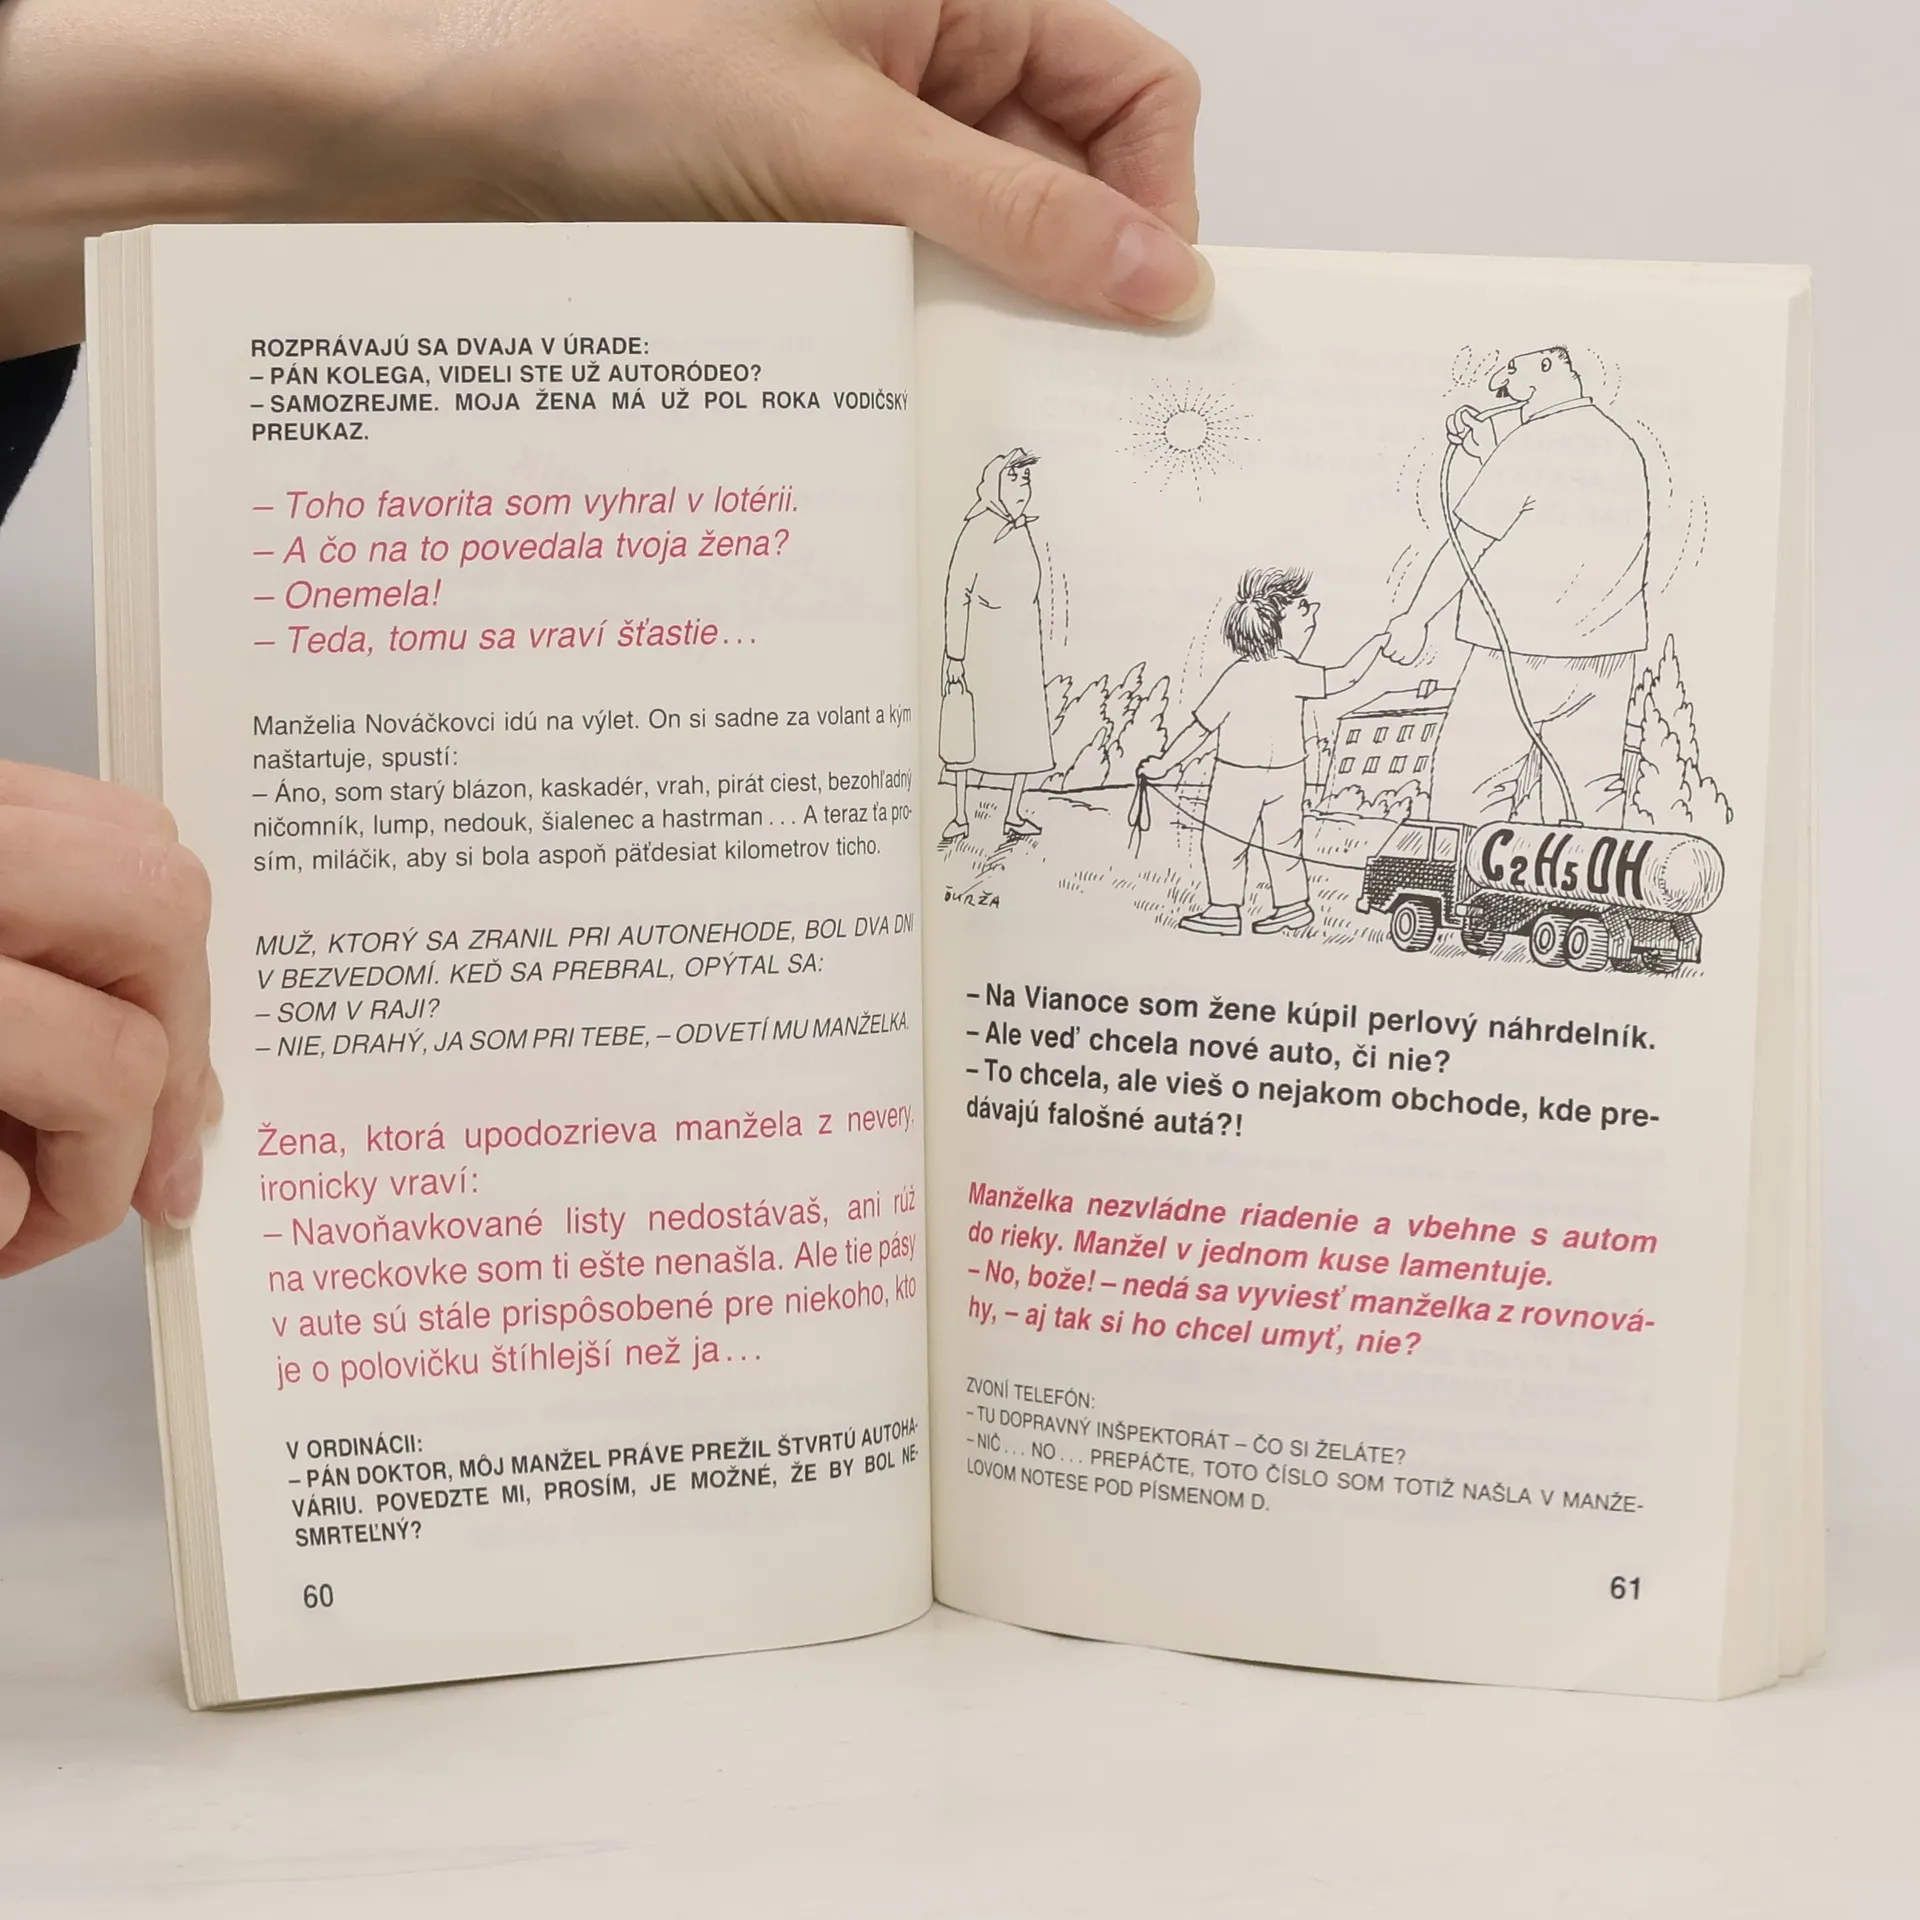 ROZPRÁVAJÚ SA DVAJA V ÚRADE:
– PÁN KOLEGA, VIDELI STE UŽ AUTORÓDEO?
– SAMOZREJME. MOJA ŽENA MÁ UŽ POL ROKA VODIČSKÝ
PREUKAZ.
– Toho favorita som vyhral v lotérii.
– A čo na to povedala tvoja žena?
– Onemela!
– Teda, tomu sa vraví šťastie...
Manželia Nováčkovci idú na výlet. On si sadne za volant a kým
naštartuje, spustí:
– Áno, som starý blázon, kaskadér, vrah, pirát ciest, bezohľadný
ničomník, lump, nedouk, šialenec a hastrman... A teraz ťa pro-
sím, miláčik, aby si bola aspoň päťdesiat kilometrov ticho.
MUŽ, KTORÝ SA ZRANIL PRI AUTONEHODE, BOL DVA DNI
V BEZVEDOMÍ. KEĎ SA PREBRAL, OPÝTAL SA:
– SOM V RAJI?
– NIE, DRAHÝ, JA SOM PRI TEBE, – ODVETÍ MU MANŽELKA.
Žena, ktorá upodozrieva manžela z nevery,
ironicky vraví:
– Navoňavkované listy nedostávaš, ani rúž
na vreckovke som ti ešte nenašla. Ale tie pásy
v aute sú stále prispôsobené pre niekoho, kto
je o polovičku štíhlejší než ja...
V ORDINÁCII:
– PÁN DOKTOR, MÔJ MANŽEL PRÁVE PREŽIL ŠTVRTÚ AUTOHA-
VÁRIU. POVEDZTE MI, PROSÍM, JE MOŽNÉ, ŽE BY BOL NE-
SMRTEĽNÝ?
60
C2H5OH
ĎURŽA
– Na Vianoce som žene kúpil perlový náhrdelník.
– Ale veď chcela nové auto, či nie?
– To chcela, ale vieš o nejakom obchode, kde pre-
dávajú falošné autá?!
Manželka nezvládne riadenie a vbehne s autom
do rieky. Manžel v jednom kuse lamentuje.
– No, bože! – nedá sa vyviesť manželka z rovnová-
hy, – aj tak si ho chcel umyť, nie?
ZVONÍ TELEFÓN:
– TU DOPRAVNÝ INŠPEKTORÁT – ČO SI ŽELÁTE?
– NIČ... NO... PREPÁČTE, TOTO ČÍSLO SOM TOTIŽ NAŠLA V MANŽE-
LOVOM NOTESE POD PÍSMENOM D.
61